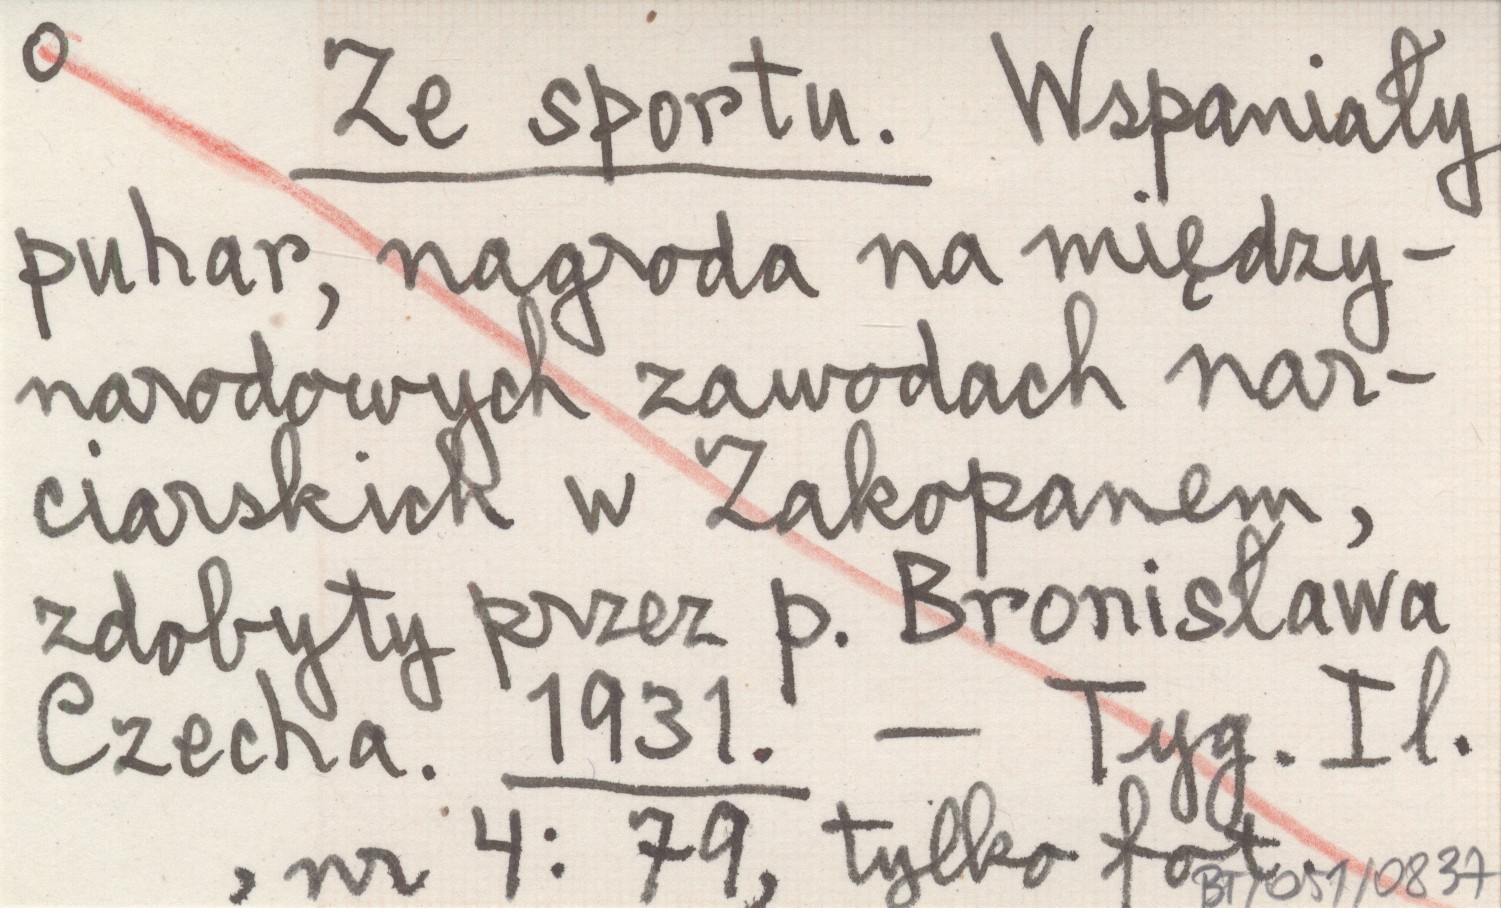 o Ze sportu. Wspaniały
puhar, nagroda na między-
narodowych zawodach nar-
ciarskich w Zakopanem,
zdobyty przez p. Bronisława
Czecha. 1931. — Tyg. Il.
, nr 4: 79, tylko fot.
BT/051/0837